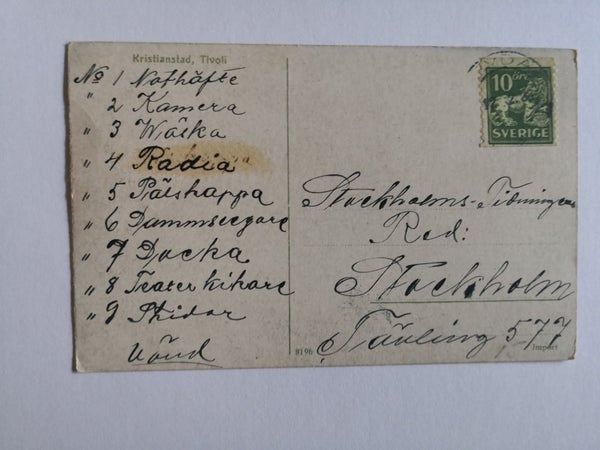 Kristianstad, Tivoli
No 1 Nothäfte
" 2 Kamera
" 3 Wäska
" 4 Radia
" 5 Pälskappa
" 6 Dammsugare
" 7 Docka
" 8 Teaterkikare
" 9 Skidor
Vänd
8196
10 öre
SVERIGE
Stockholms-Tidningens
Red:
Stockholm
Tävling 577
Import